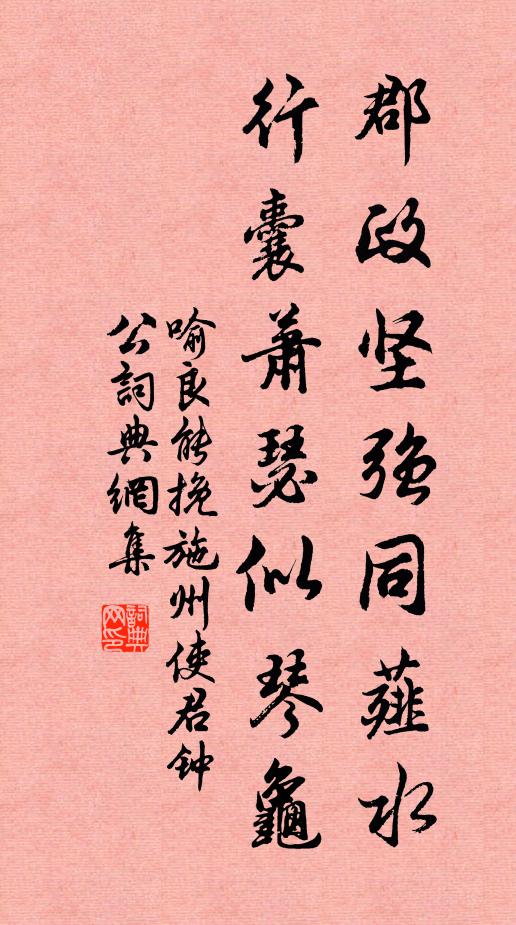 郡政坚强同薤水
行囊萧瑟似琴龜
喻良能挽施州使君钟
公詞典網集
詞典
网印